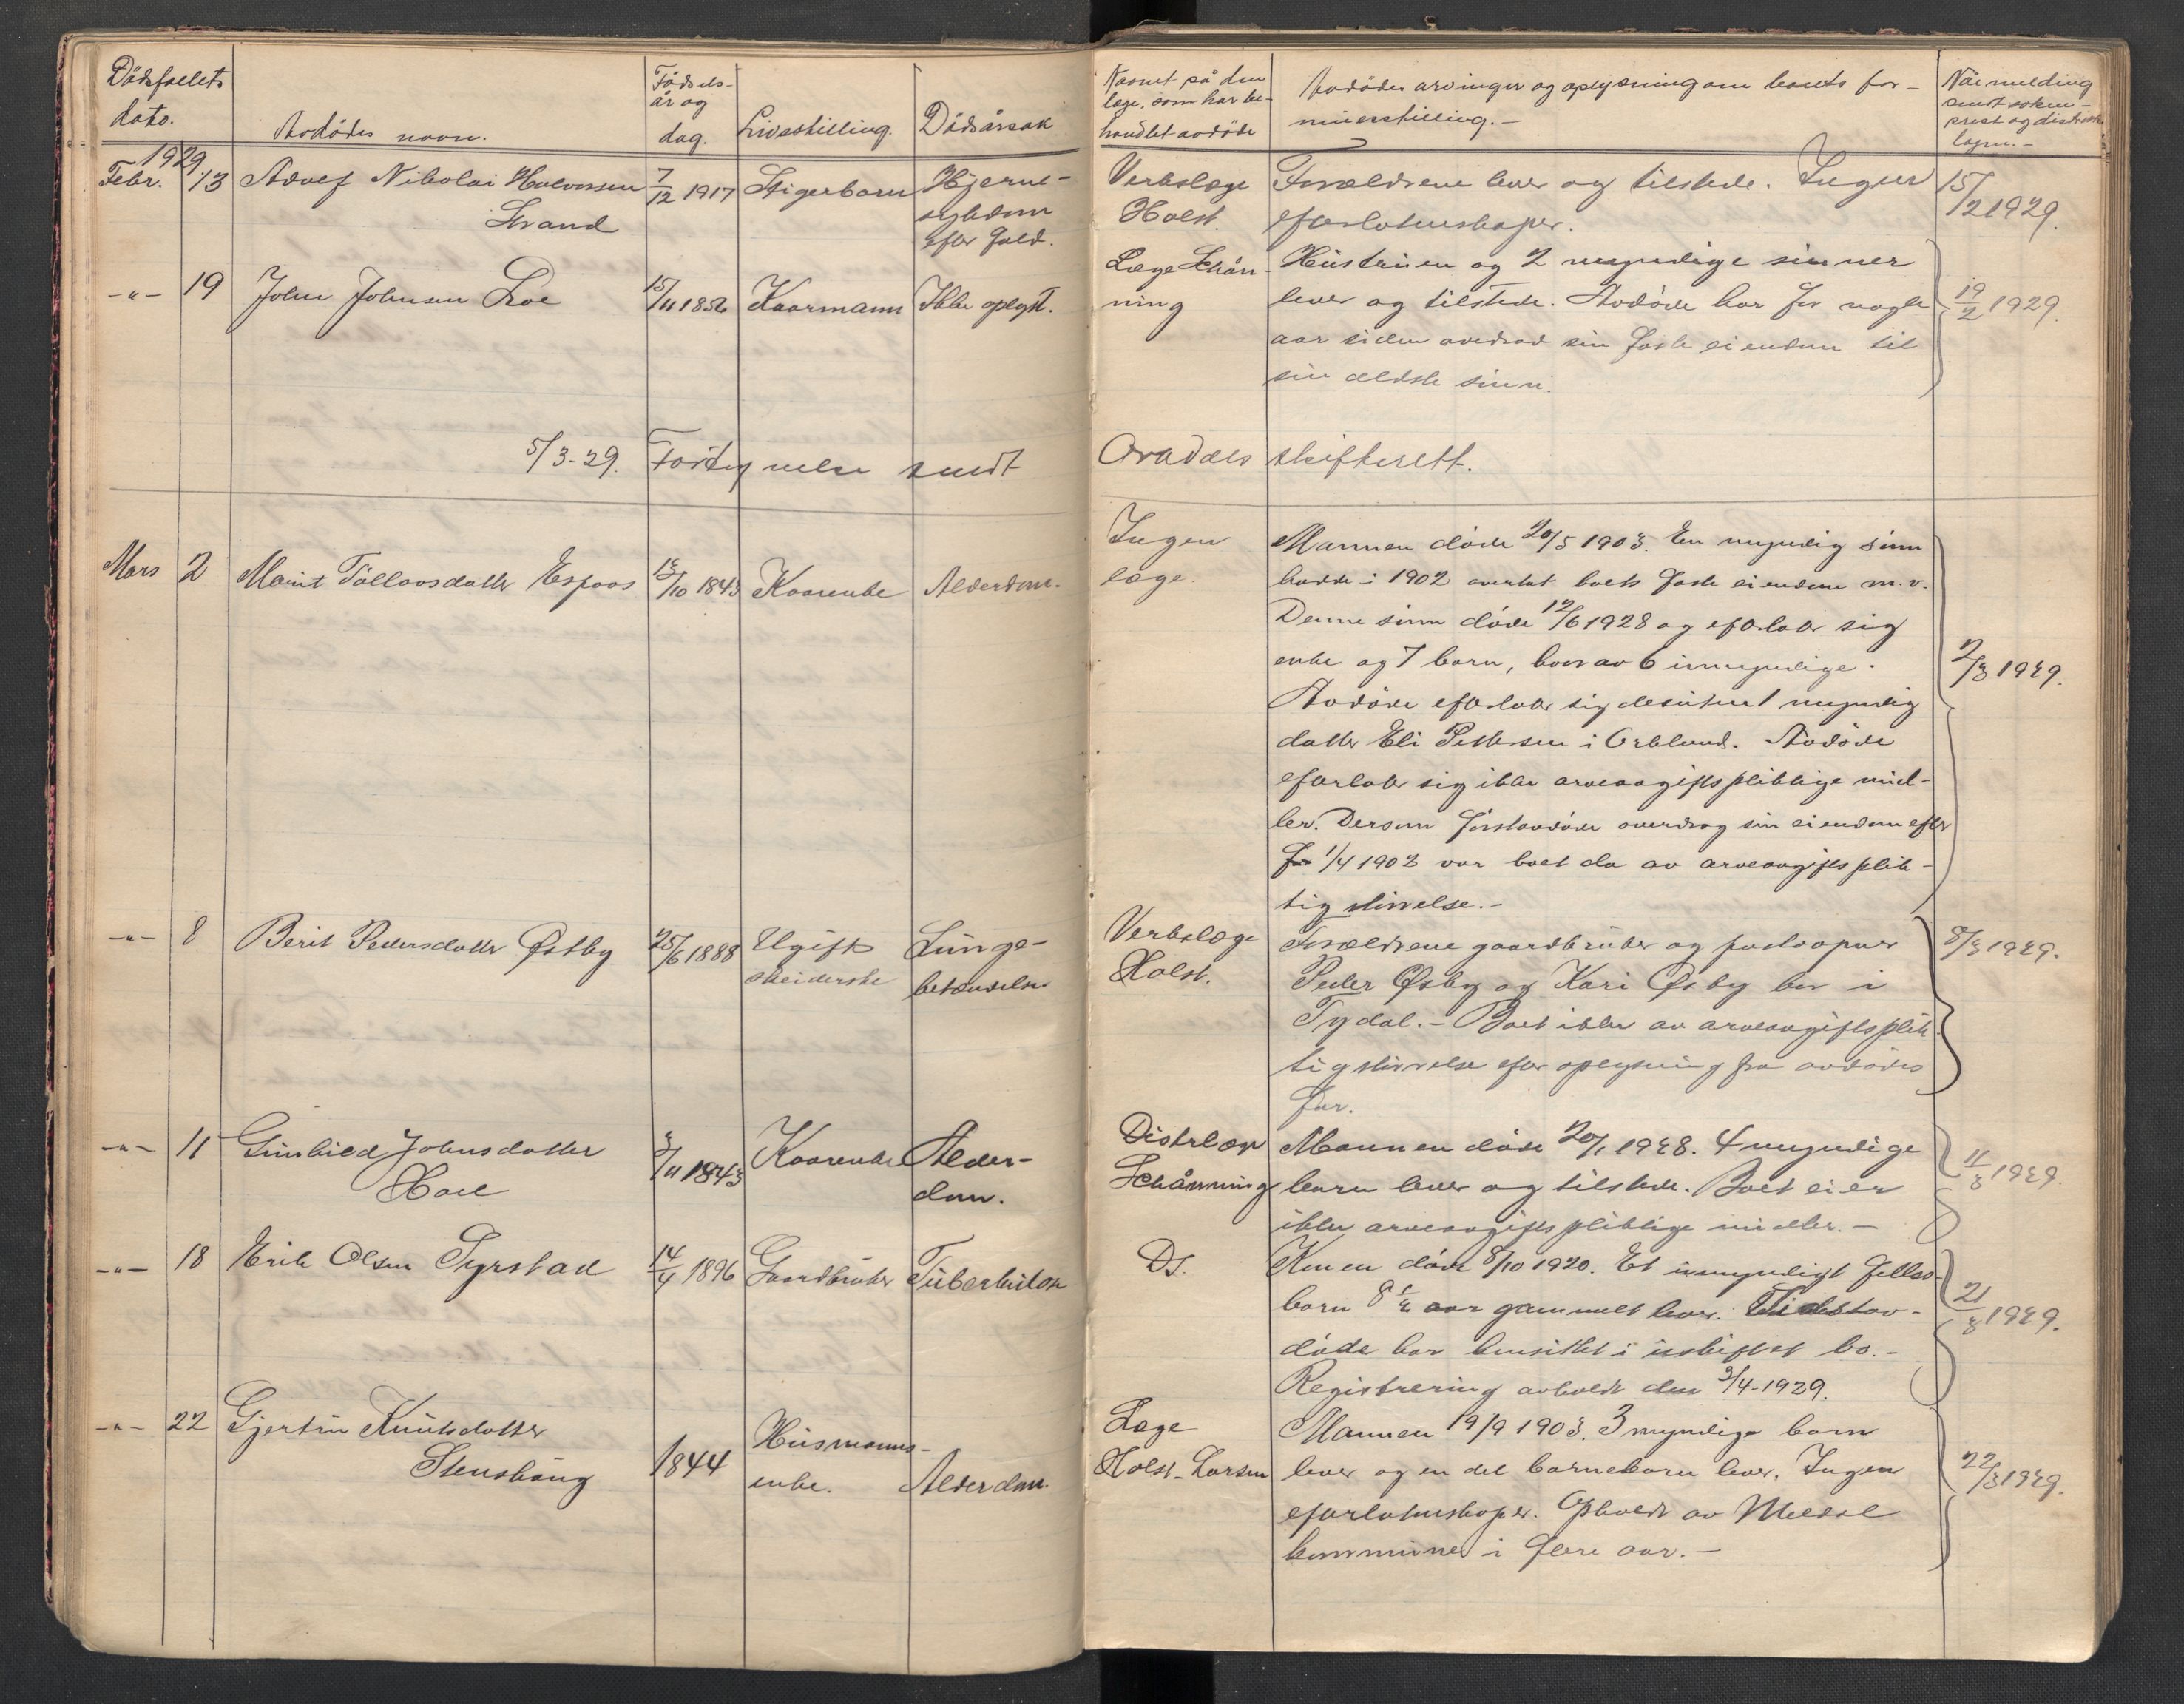 Dödsfaldets dato.
Avdödes navn.
Födsels-
år og
dag.
Livsstilling.
Dödsårsak
Navnet på den
læge, som har be-
handlet avdöde
Avdödes arvinger og oplysning om boets for-
muesstilling.-
Når melding
sendt sokne-
prest og distrikts
lægen.-
1929
Febr. 13 Adolf Nikolai Halvorsen
Strand
7/12 1917 Stigerbarn Hjerne-
sykdom
efter fald.
Verkslæge
Holst.
Forældrene lever og tilstede. Ingen
efterlatenskaper.
15/2 1929.
-"- 19 John Johnsen Loe 15/11 1856 Kaarmann Ikke oplyst.
Læge Schön-
ning
Hustruen og 2 myndige sönner
lever og tilstede. Avdöde har for nogle
aar siden avedrad sin faste eiendom til
sin ældste sönn.
19/2 1929.
5/3-29. Fortegnelse sendt Orkdals skifterett.
Mars 2 Marit Tølløvsdatter Espaas 13/10 1843 Kaarenke Alderdom.
Ingen
læge.
Mannen döde 20/5 1903. En myndig sönn
hadde i 1902 overtat boets faste eiendom m.v.
Denne sönn döde 12/6 1928 og efterlater sig
enke og 7 barn, hvorav 6 umyndige.
Avdöde efterlater sig desuten 1 myndig
datter Eli Pettersen i Orkland. Avdöde
efterlater sig ikke arveavgiftspliktige mid-
ler. Dersom förstavdöde overdrog sin eiendom efter
for 1/4 1903 var boet da av arveavgiftsplik-
tig störrelse.-
2/3 1929.
-"- 8 Berit Pedersdatter Østby 25/6 1888 Ugift
skeiderske
Lunge-
betændelse
Verkslæge
Holst.
Forældrene gaardbruker og postaapner
Peder Øsby og Kari Øsby bor i
Tydal.- Boet ikke av arveavgiftsplik-
tig störrelse efter oplysning fra avdödes
far.
8/3 1929.
-"- 11 Gunhild Johnsdatter
Hoel
3/11 1843 Kaarenke Alder-
dom.
Distrlæge
Schönning
Mannen döde 20/1 1928. 4 myndige
barn lever og tilstede. Boet eier
ikke arveavgiftspliktige midler.-
11/3 1929.
-"- 18 Erik Olsen Syrstad 14/4 1896 Gaardbruker Tuberkulose
Ds.
Konen döde 8/10 1920. Et umyndigt felles-
barn 8 1/2 aar gammelt lever. Sidstav-
döde har hensittet i uskiftet bo.-
Registrering avholdt den 3/4-1929.
21/3 1929.
-"- 22 Gjertru Knutsdatter
Stenshaug
1844 Husmanns-
enke.
Alderdom.
Læge
Holst-Larsen
Mannen 19/9 1903. 3 myndige barn
lever og en del barnebarn lever. Ingen
efterlatenskaper. Opholdt av Meldal
kommune i flere aar.-
22/3 1929.